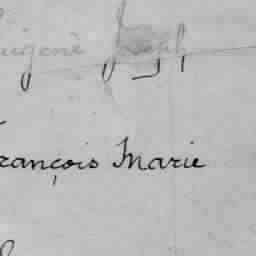 Eugène Joseph
François Marie